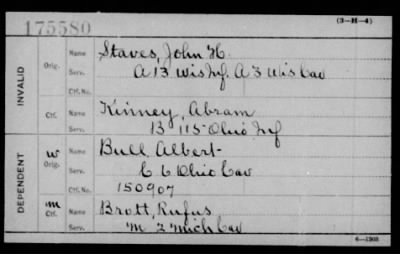 175580
(3-H-4)
INVALID
Orig. Name Staves, John H.
Serv. A 13 Wis Inf. A 3 Wis Cav
Ctf. No.
Ctf. Name Kinney, Abram
Serv. B 115 Ohio Inf
DEPENDENT
W Orig. Name Bull Albert
Serv. C 6 Ohio Cav
Ctf. No. 150907
M Ctf. Name Brott, Rufus
Serv. M 2 Mich Cav
6-1908